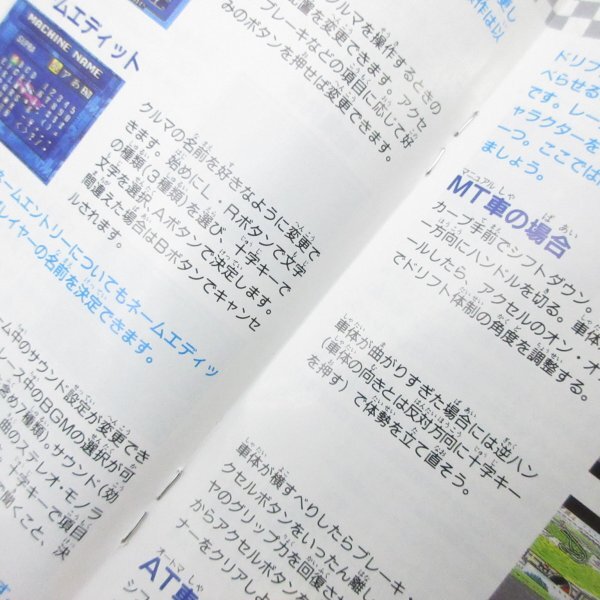 クルマを操作するときの
置を変更できます。アクセ
ブレーキなどの項目に応じて好
みのボタンを押せば変更できます。
ムエディット
MACHINE NAME
クルマの名前を好きなように変更で
きます。始めにL・Rボタンで文字
の種類(3種類)を選び、十字キーで
文字を選択、Aボタンで決定します。
間違えた場合はBボタンでキャンセ
ルされます。
ネームエントリーについてもネームエディッ
レイヤーの名前を決定できます。
ム中のサウンド設定が変更でき
レース中のBGMの選択が可
含め7種類)。サウンド(効
曲のステレオ モノラ
十字キーで項目
働くこと、決
ドリフ
べらせる
です。レー
ャラクターを
一つ。ここでは
ましょう。
マニュアル しゃ ば あい
MT車の場合
カーブ手前でシフトダウン。
一方向にハンドルを切る。車体
ールしたら、アクセルのオン・オ
でドリフト体制の角度を調整する。
車体が曲がりすぎた場合には逆ハン
(車体の向きとは反対方向に十字キー
を押す)で体勢を立て直そう。
車体が横すべりしたらブレーキ・
クセルボタンをいったん離し
ヤのグリップ力を回復さ
からアクセルボタンを
ナーをクリアしよ
オートマ しゃ
AT車
シフ